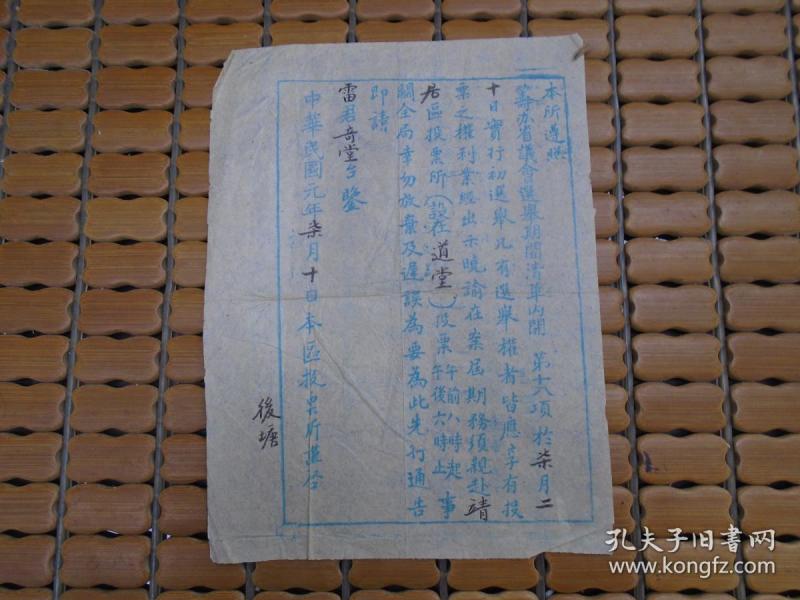 本所遵照
籌办省議會選舉期間清單內開 第六項 於柒月二
十日實行初選舉凡有選舉權者皆應享有投
票之權利業經出示曉諭在案屆期務須親赴靖
居區投票所(設在道堂)投票午前八時起午後六時止事
關全局幸勿放棄及遲誤為要為此先行通告
即請
雷君奇堂台鑒
中華民國元年柒月十日本區投票所謹啓
後塘
孔夫子旧书网
www.kongfz.com